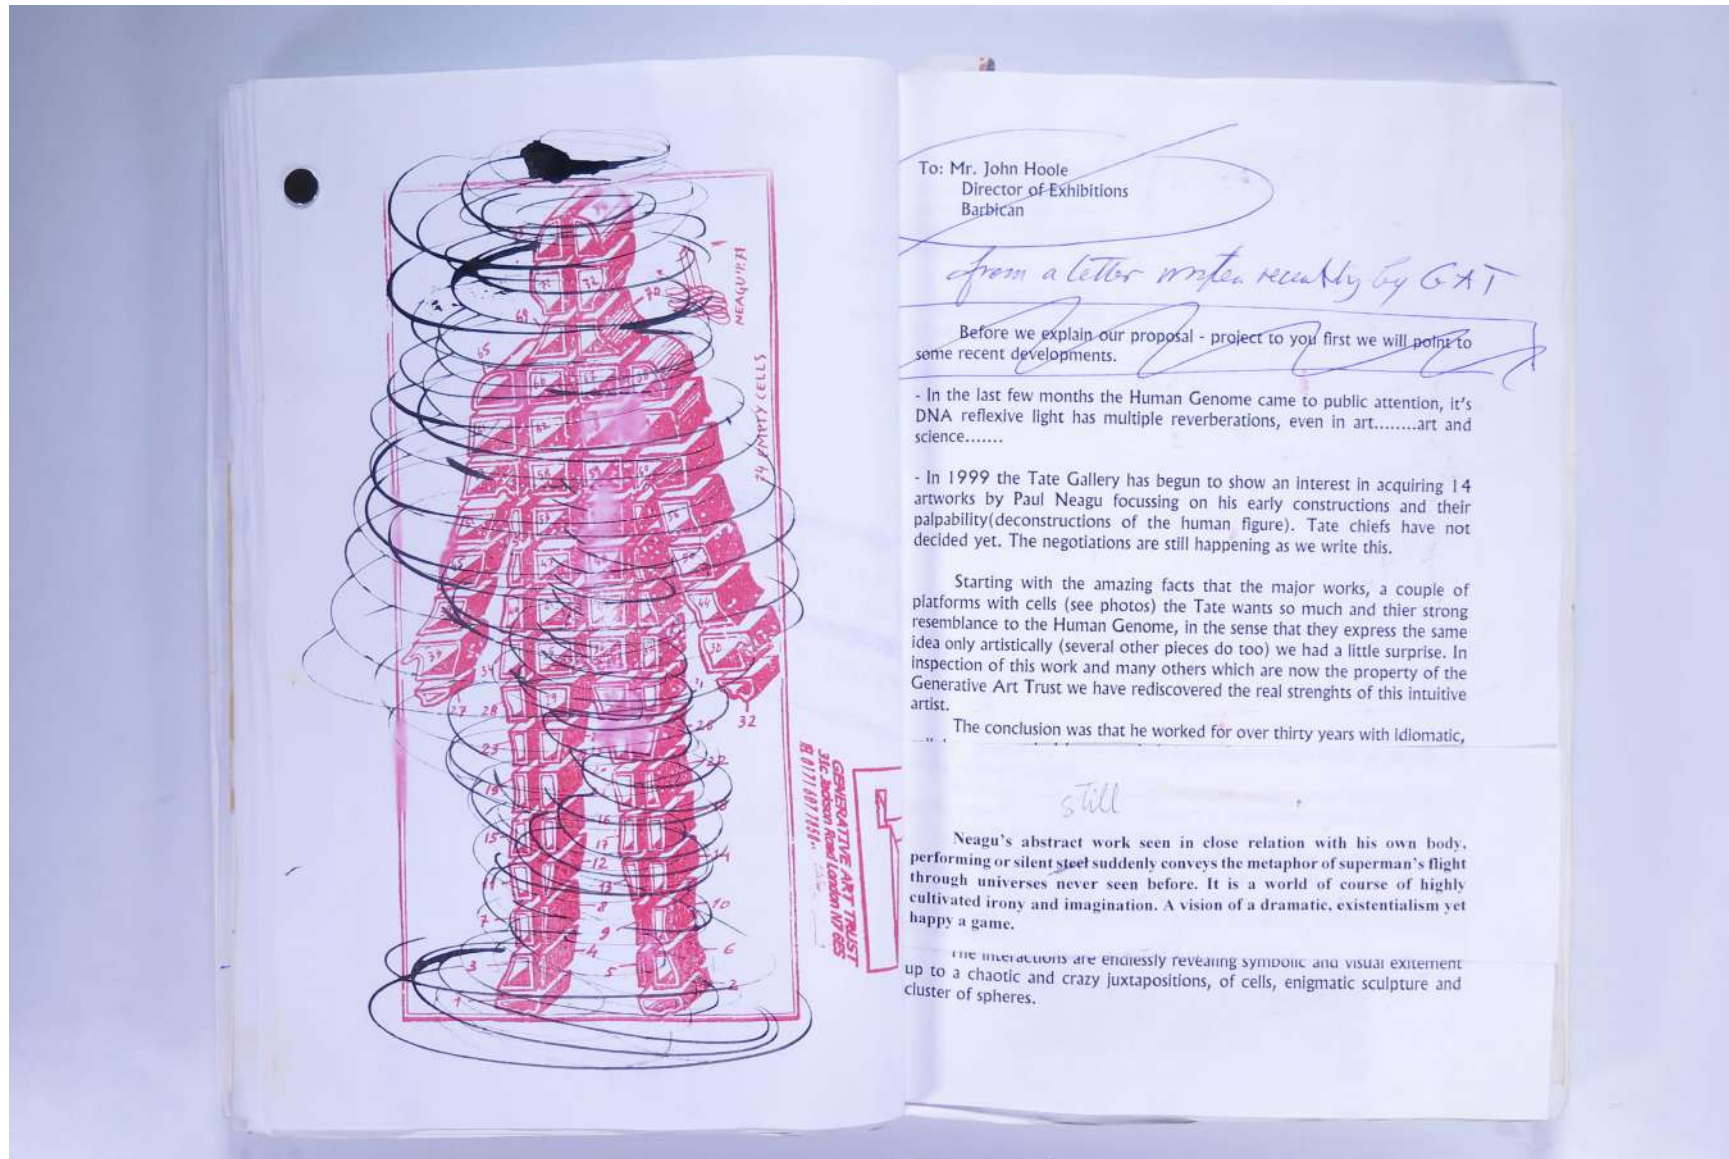 NEAGU P. 71
74 EMPTY CELLS
74
72
70
69
65
44
34
27
28
32
31
26
23
22
19
15
16
17
12
14
11
13
8
7
10
9
4
6
3
5
1
2
GENERATIVE ART TRUST
31c Jackson Road London N7 6ES
0171 607 7858
To: Mr. John Hoole
Director of Exhibitions
Barbican
from a letter written recently by GAT
Before we explain our proposal - project to you first we will point to
some recent developments.
- In the last few months the Human Genome came to public attention, it's
DNA reflexive light has multiple reverberations, even in art........art and
science.......
- In 1999 the Tate Gallery has begun to show an interest in acquiring 14
artworks by Paul Neagu focussing on his early constructions and their
palpability(deconstructions of the human figure). Tate chiefs have not
decided yet. The negotiations are still happening as we write this.
Starting with the amazing facts that the major works, a couple of
platforms with cells (see photos) the Tate wants so much and thier strong
resemblance to the Human Genome, in the sense that they express the same
idea only artistically (several other pieces do too) we had a little surprise. In
inspection of this work and many others which are now the property of the
Generative Art Trust we have rediscovered the real strenghts of this intuitive
artist.
The conclusion was that he worked for over thirty years with idiomatic,
still
Neagu's abstract work seen in close relation with his own body,
performing or silent steel suddenly conveys the metaphor of superman's flight
through universes never seen before. It is a world of course of highly
cultivated irony and imagination. A vision of a dramatic, existentialism yet
happy a game.
The interactions are endlessly revealing symbolic and visual exitement
up to a chaotic and crazy juxtapositions, of cells, enigmatic sculpture and
cluster of spheres.